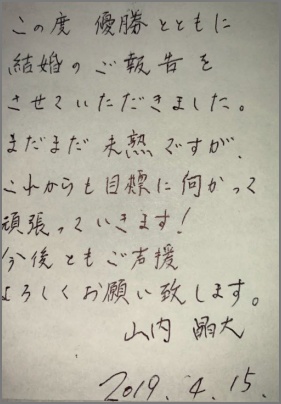 この度 優勝とともに
結婚のご報告を
させていただきました。
まだまだ未熟ですが、
これからも目標に向かって
頑張っていきます！
今後ともご声援
よろしくお願い致します。
山内 晶大
2019. 4. 15.